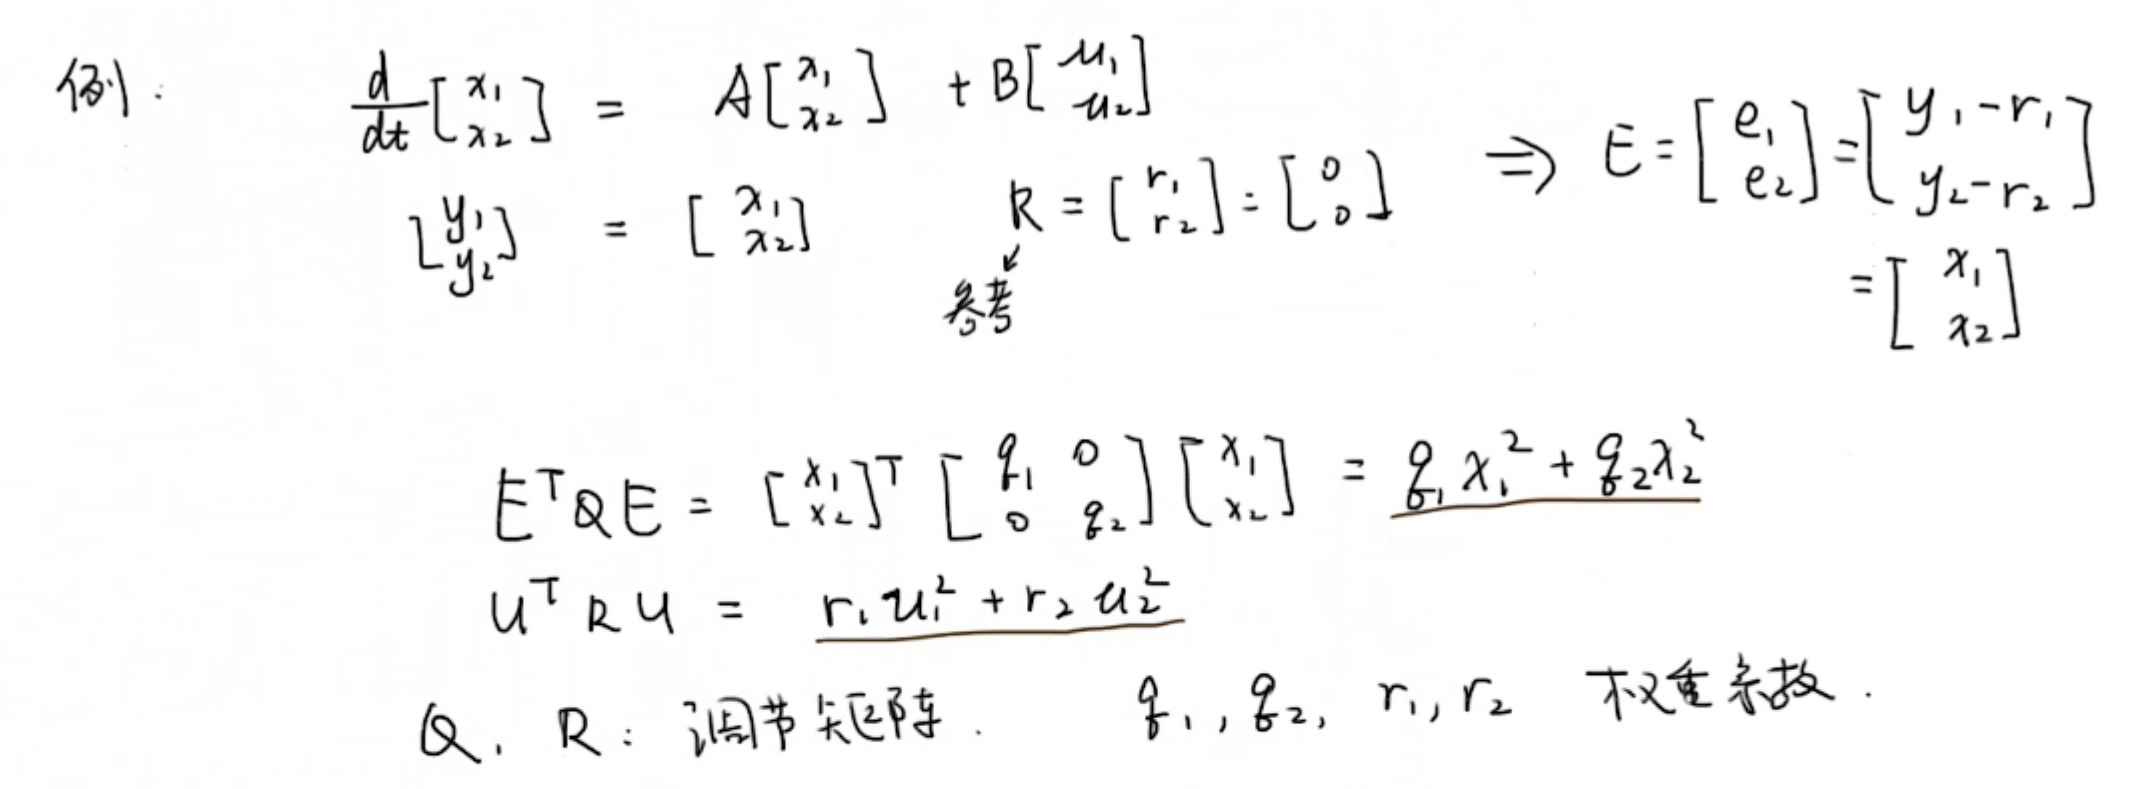 例: d/dt [x₁ x₂] = A [x₁ x₂] + B [u₁ u₂]
[y₁ y₂] = [x₁ x₂] R = [r₁ r₂] = [0 0] ⇒ E = [e₁ e₂] = [y₁-r₁ y₂-r₂]
参考
= [x₁ x₂]
EᵀQE = [x₁ x₂]ᵀ [q₁ 0 0 q₂] [x₁ x₂] = q₁x₁² + q₂x₂²
uᵀRu = r₁u₁² + r₂u₂²
Q, R: 调节矩阵. q₁, q₂, r₁, r₂ 权重系数.